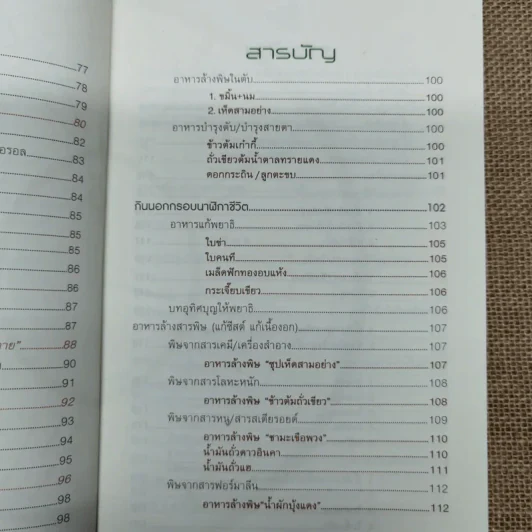 77
78
79
80
82
อรอล 83
84
84
85
85
85
86
86
87
87
าย" 88
90
91
92
93
94
95
96
98
98
สารบัญ
อาหารล้างพิษในตับ 100
1. ขมิ้น+นม 100
2. เห็ดสามอย่าง 100
อาหารบำรุงตับ/บำรุงสายตา 100
ข้าวต้มเก๋ากี้ 100
ถั่วเขียวต้มน้ำตาลทรายแดง 101
ดอกกระถิน/ลูกตะขบ 101
กินนอกกรอบนาฬิกาชีวิต 102
อาหารแก้พยาธิ 103
ใบข่า 105
ใบคนที 105
เมล็ดฟักทองอบแห้ง 106
กระเจี๊ยบเขียว 106
บทอุทิศบุญให้พยาธิ 106
อาหารล้างสารพิษ (แก้ซีสต์ แก้เนื้องอก) 107
พิษจากสารเคมี/เครื่องสำอาง 107
อาหารล้างพิษ "ซุปเห็ดสามอย่าง" 107
พิษจากสารโลหะหนัก 108
อาหารล้างพิษ "ข้าวต้มถั่วเขียว" 108
พิษจากสารหนู/สารสเตียรอยด์ 109
อาหารล้างพิษ "ชามะเขือพวง" 110
น้ำมันถั่วดาวอินคา 110
น้ำมันถั่วแฮ 111
พิษจากสารฟอร์มาลีน 112
อาหารล้างพิษ"น้ำผักบุ้งแดง" 112